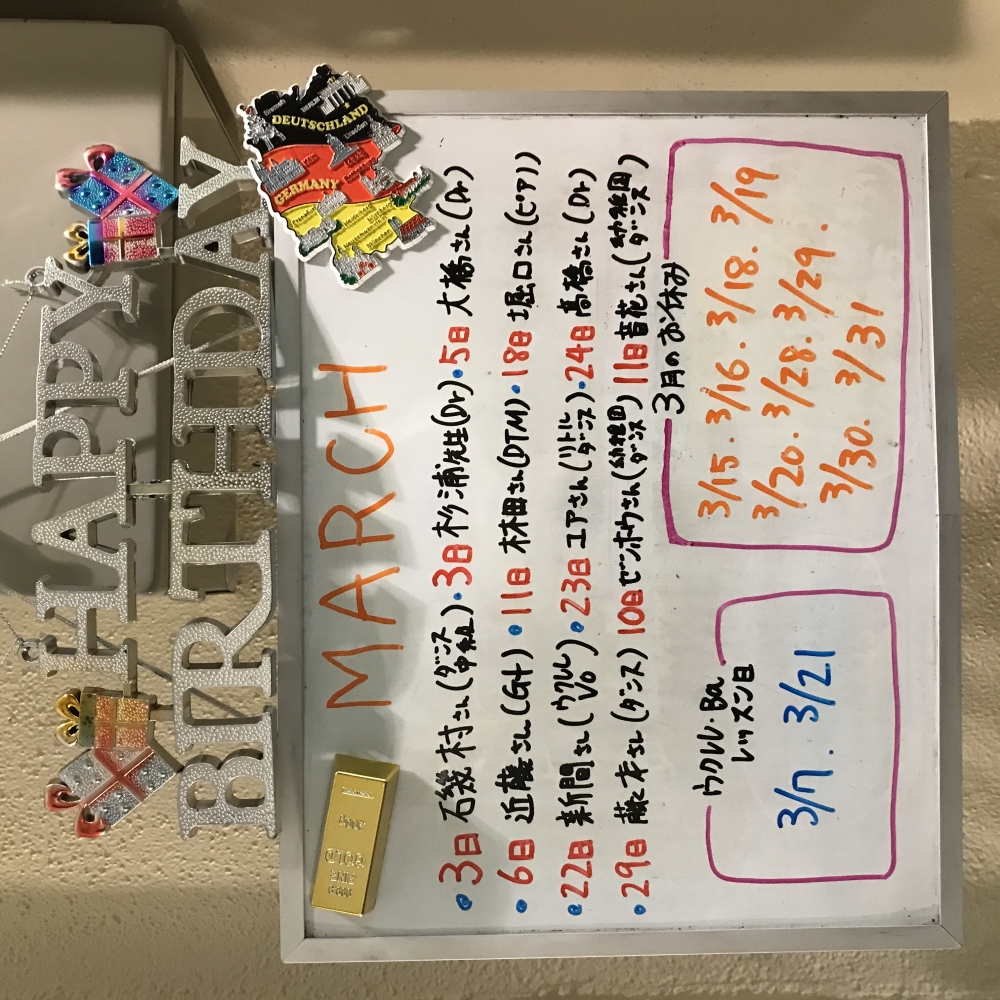 HAPPY
BIRTHDAY
DEUTSCHLAND
GERMANY
BERLIN
Bremen
Dresden
MARCH
•3日 石幾村さん(ダンス中級)•3日 杉浦先生(Dr)•5日 大橋さん(Dr)
•6日 近藤さん(Gt)•11日 林田さん(DTM)•18日 堀口さん(ピア))
•22日 新間さん(ウクレレVo)•23日 ユアさん(リトルダンス)•24日 高橋さん(Dr)
•29日 藤本さん(ダンス) 10日ゼンホウさん(幼稚園ダンス) 11日音花さん(幼稚園ダンス)
ウクレレ・Ba
レッスン日
3/7. 3/21
3月のお休み
3/15. 3/16. 3/18. 3/19
3/20. 3/28. 3/29.
3/30. 3/31
FINE
GOLD